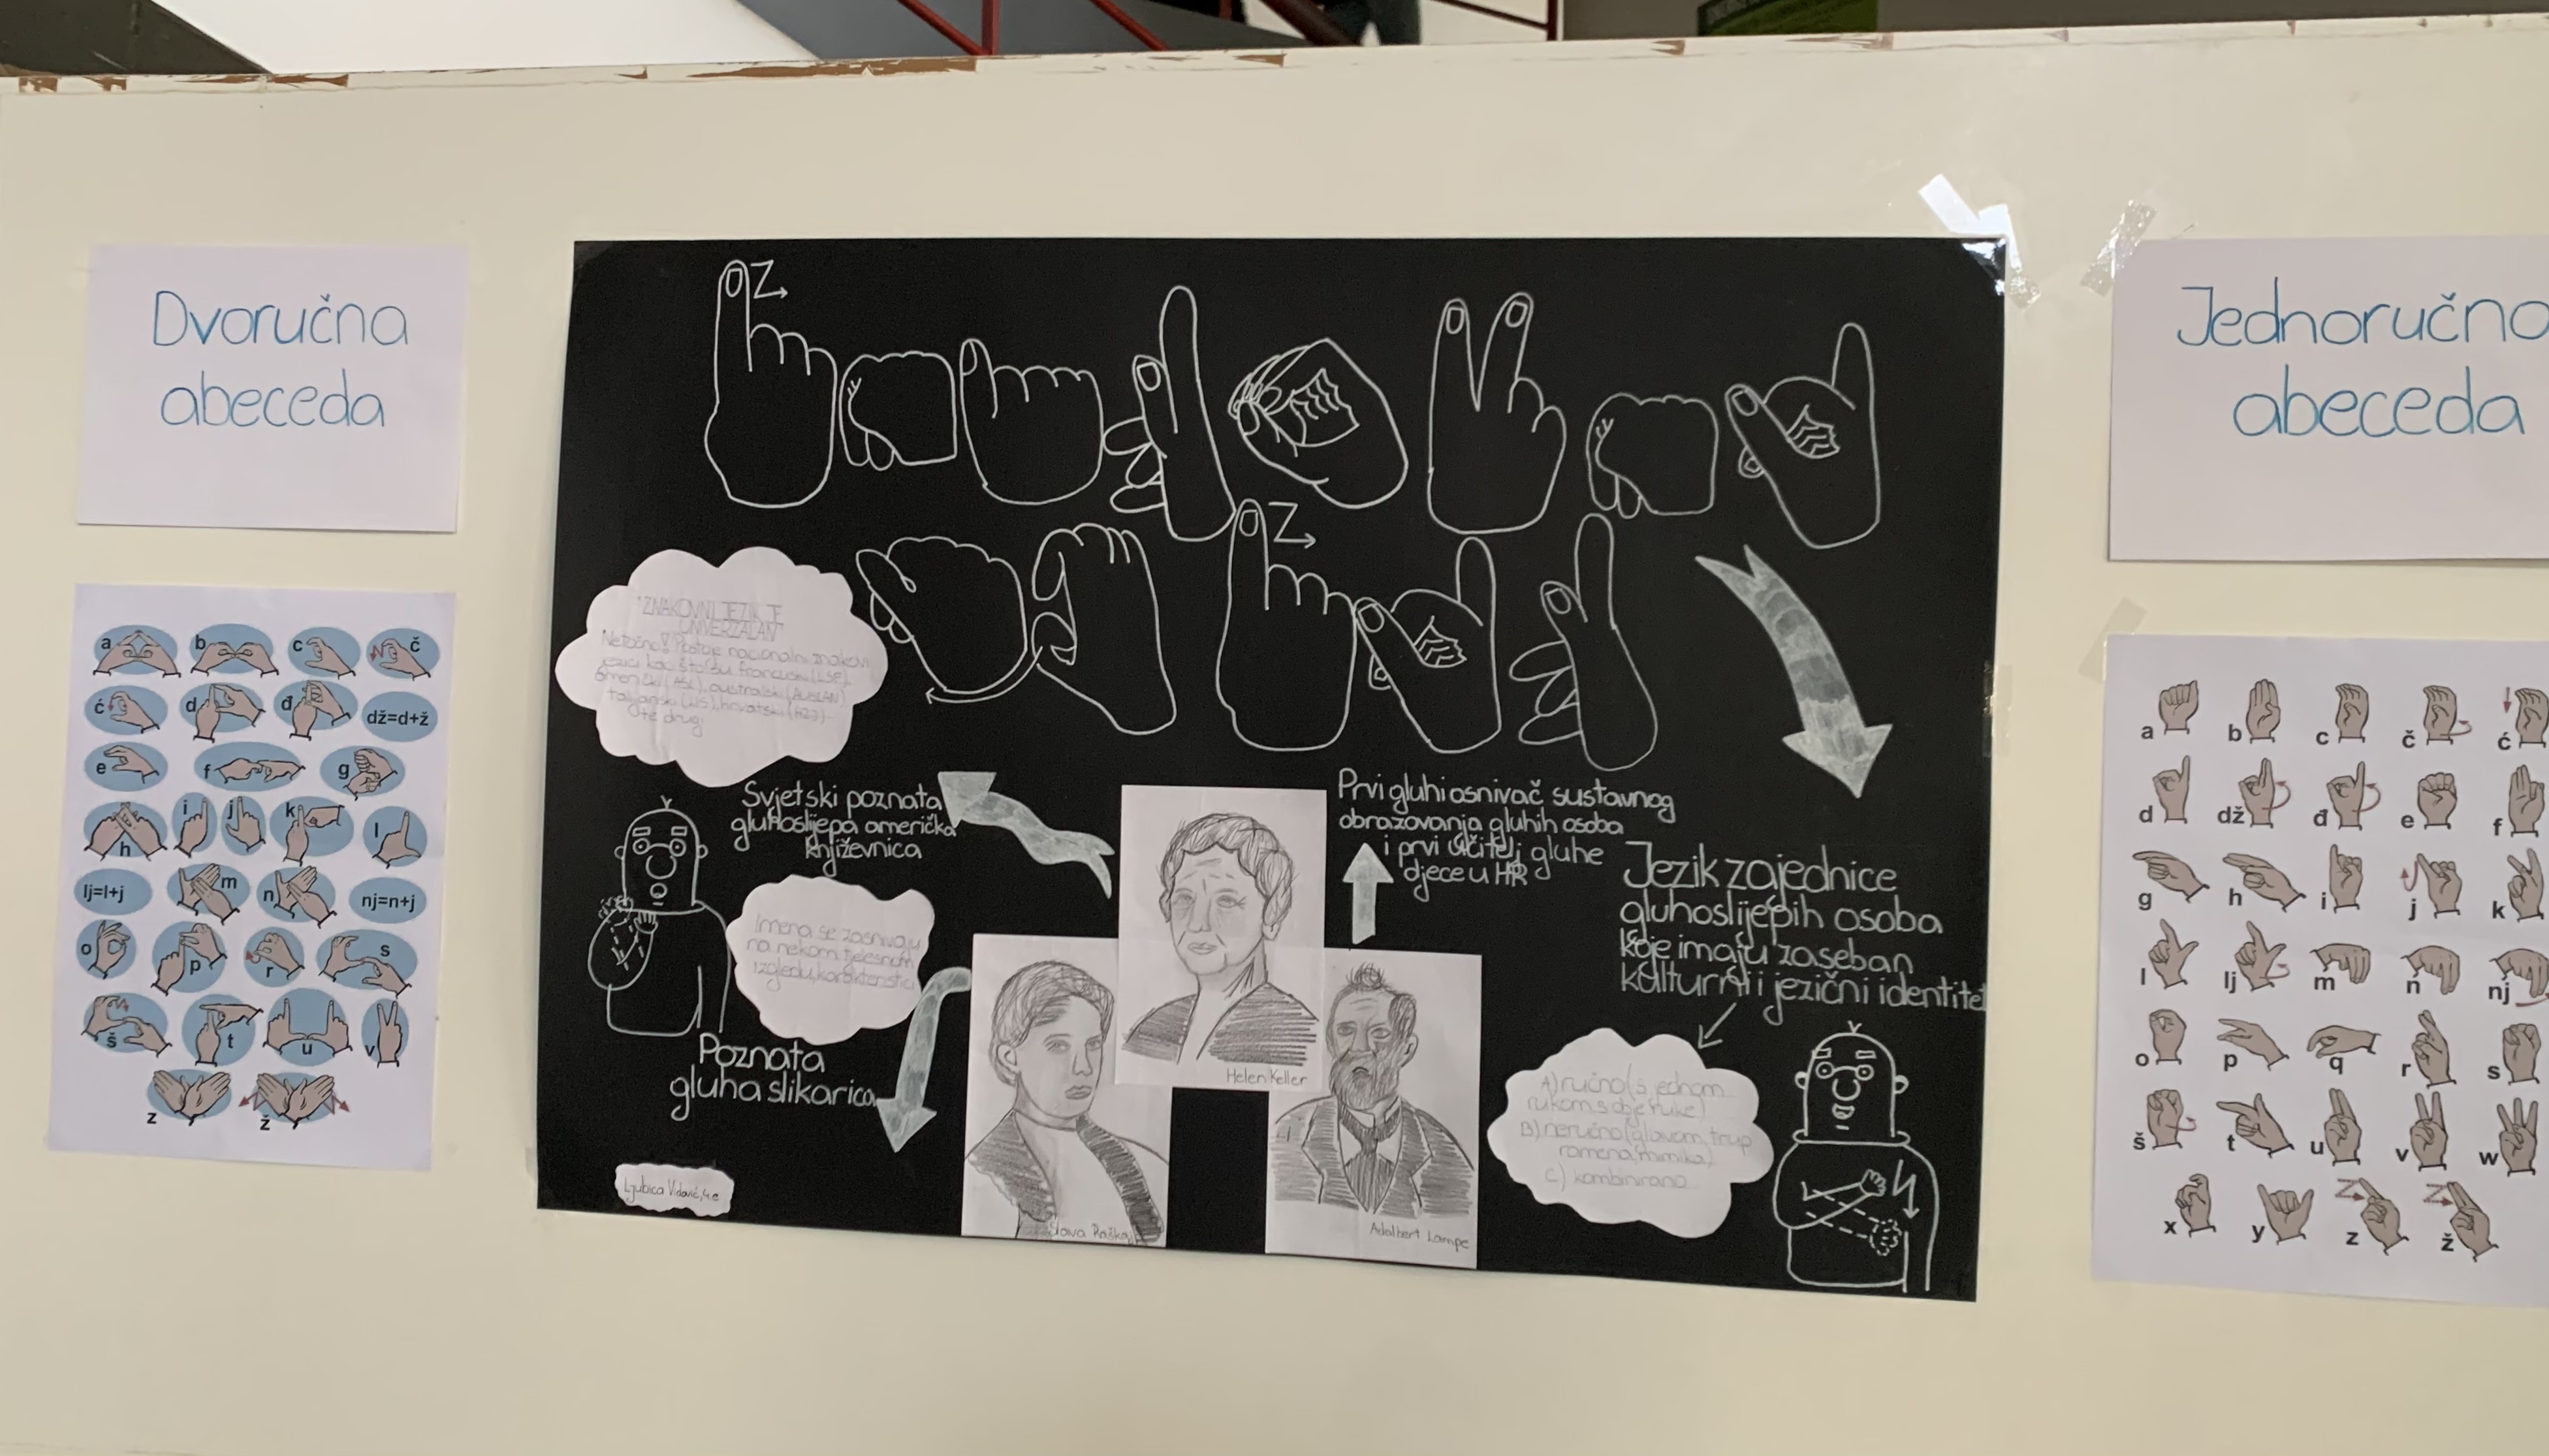 Dvoručna
abeceda
a b c č
ć d đ dž=d+ž
e f g
h i j k l
lj=l+j m n nj=n+j
o p r s
š t u v
z ž
Z
Z
"ZNAKOVNI JEZIK JE
UNIVERZALAN"
Netočno! Postoje nacionalni znakovni
jezici kao što su francuski (LSF),
američki (ASL), australski (AUSLAN),
talijanski (LIS), hrvatski (HZJ)
te drugi
Svjetski poznata
gluhoslijepa američka
književnica
Imena se zasnivaju
na nekom tjelesnom
izgledu, karakteristici
Poznata
gluha slikarica
Ljubica Vidović, 4.e
Helen Keller
Slava Raškaj
Adalbert Lampe
Prvi gluhi osnivač sustavnog
obrazovanja gluhih osoba
i prvi učitelj gluhe
djece u HR
Jezik zajednice
gluhoslijepih osoba
koje imaju zaseban
kulturni i jezični identitet
A) ručno (s jednom
rukom, s obje ruke)
B) neručno (glavom, trup
ramena, mimika)
C) kombinirano
Jednoručna
abeceda
a b c č ć
d dž đ e f
g h i j k
l lj m n nj
o p q r s
š t u v w
x y z ž